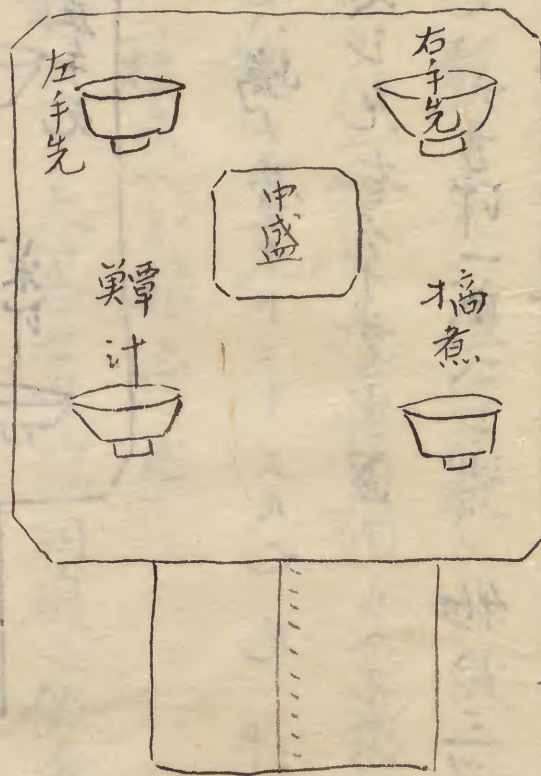 右手先
左手先
中盛
摘煮
汁